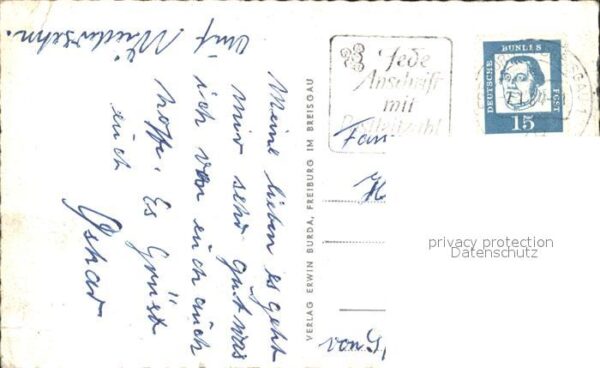 Meine lieben es geht
mir sehr gut was
ich von euch auch
hoffe. Es Grüst
euch
Oskar
Auf Wiedersehn.
VERLAG ERWIN BURDA, FREIBURG IM BREISGAU
Jede
Anschrift
mit
Postleitzahl
DEUTSCHE
BUNDES
POST
15
Fam
H
privacy protection
Datenschutz